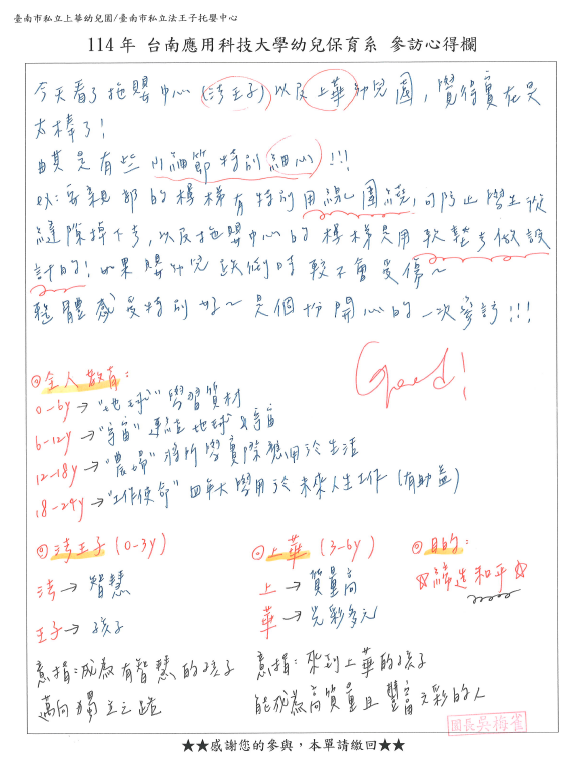 臺南市私立上華幼兒園/臺南市私立法王子托嬰中心
114年 台南應用科技大學幼兒保育系 參訪心得欄
今天看了托嬰中心(法王子)以及上華幼兒園，覺得實在是
太棒了!
尤其是有些小細節特別細心!!!
ex:安親部的樓梯有特別用繩圍繞,可防止學生從
縫隙掉下去,以及托嬰中心的樓梯是用軟墊去做設
計的!如果嬰幼兒跌倒時較不會受傷~
整體感受特別好~是個份開心的一次參訪!!!
Good!
◎全人教育:
0-6y→"地球"學習質材
6-12y→"宇宙"連結地球&宇宙
12-18y→"農場"將所學實際應用於生活
18-24y→"工作使命"四年大學用於未來人生工作(有助益)
◎法王子(0-3y)
法→智慧
王子→孩子
意指:成為有智慧的孩子
邁向獨立之路
◎上華(3-6y)
上→質量高
華→光彩多元
意指:來到上華的孩子
能成為高質量且豐富文彩的人
◎目的:
☆締造和平☆
園長吳梅雀
★★感謝您的參與，本單請繳回★★